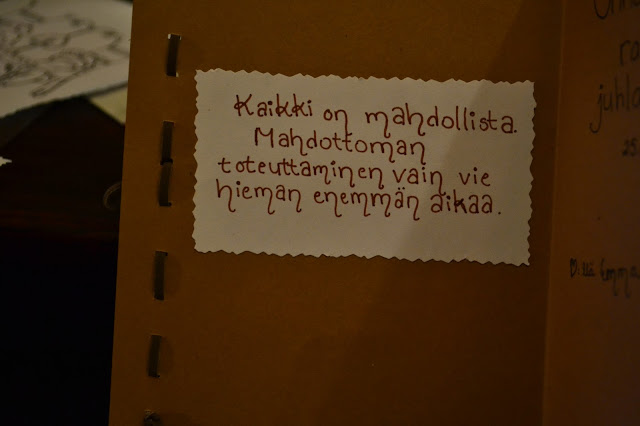 Kaikki on mahdollista.
Mahdottoman
toteuttaminen vain vie
hieman enemmän aikaa.
juhla
25.